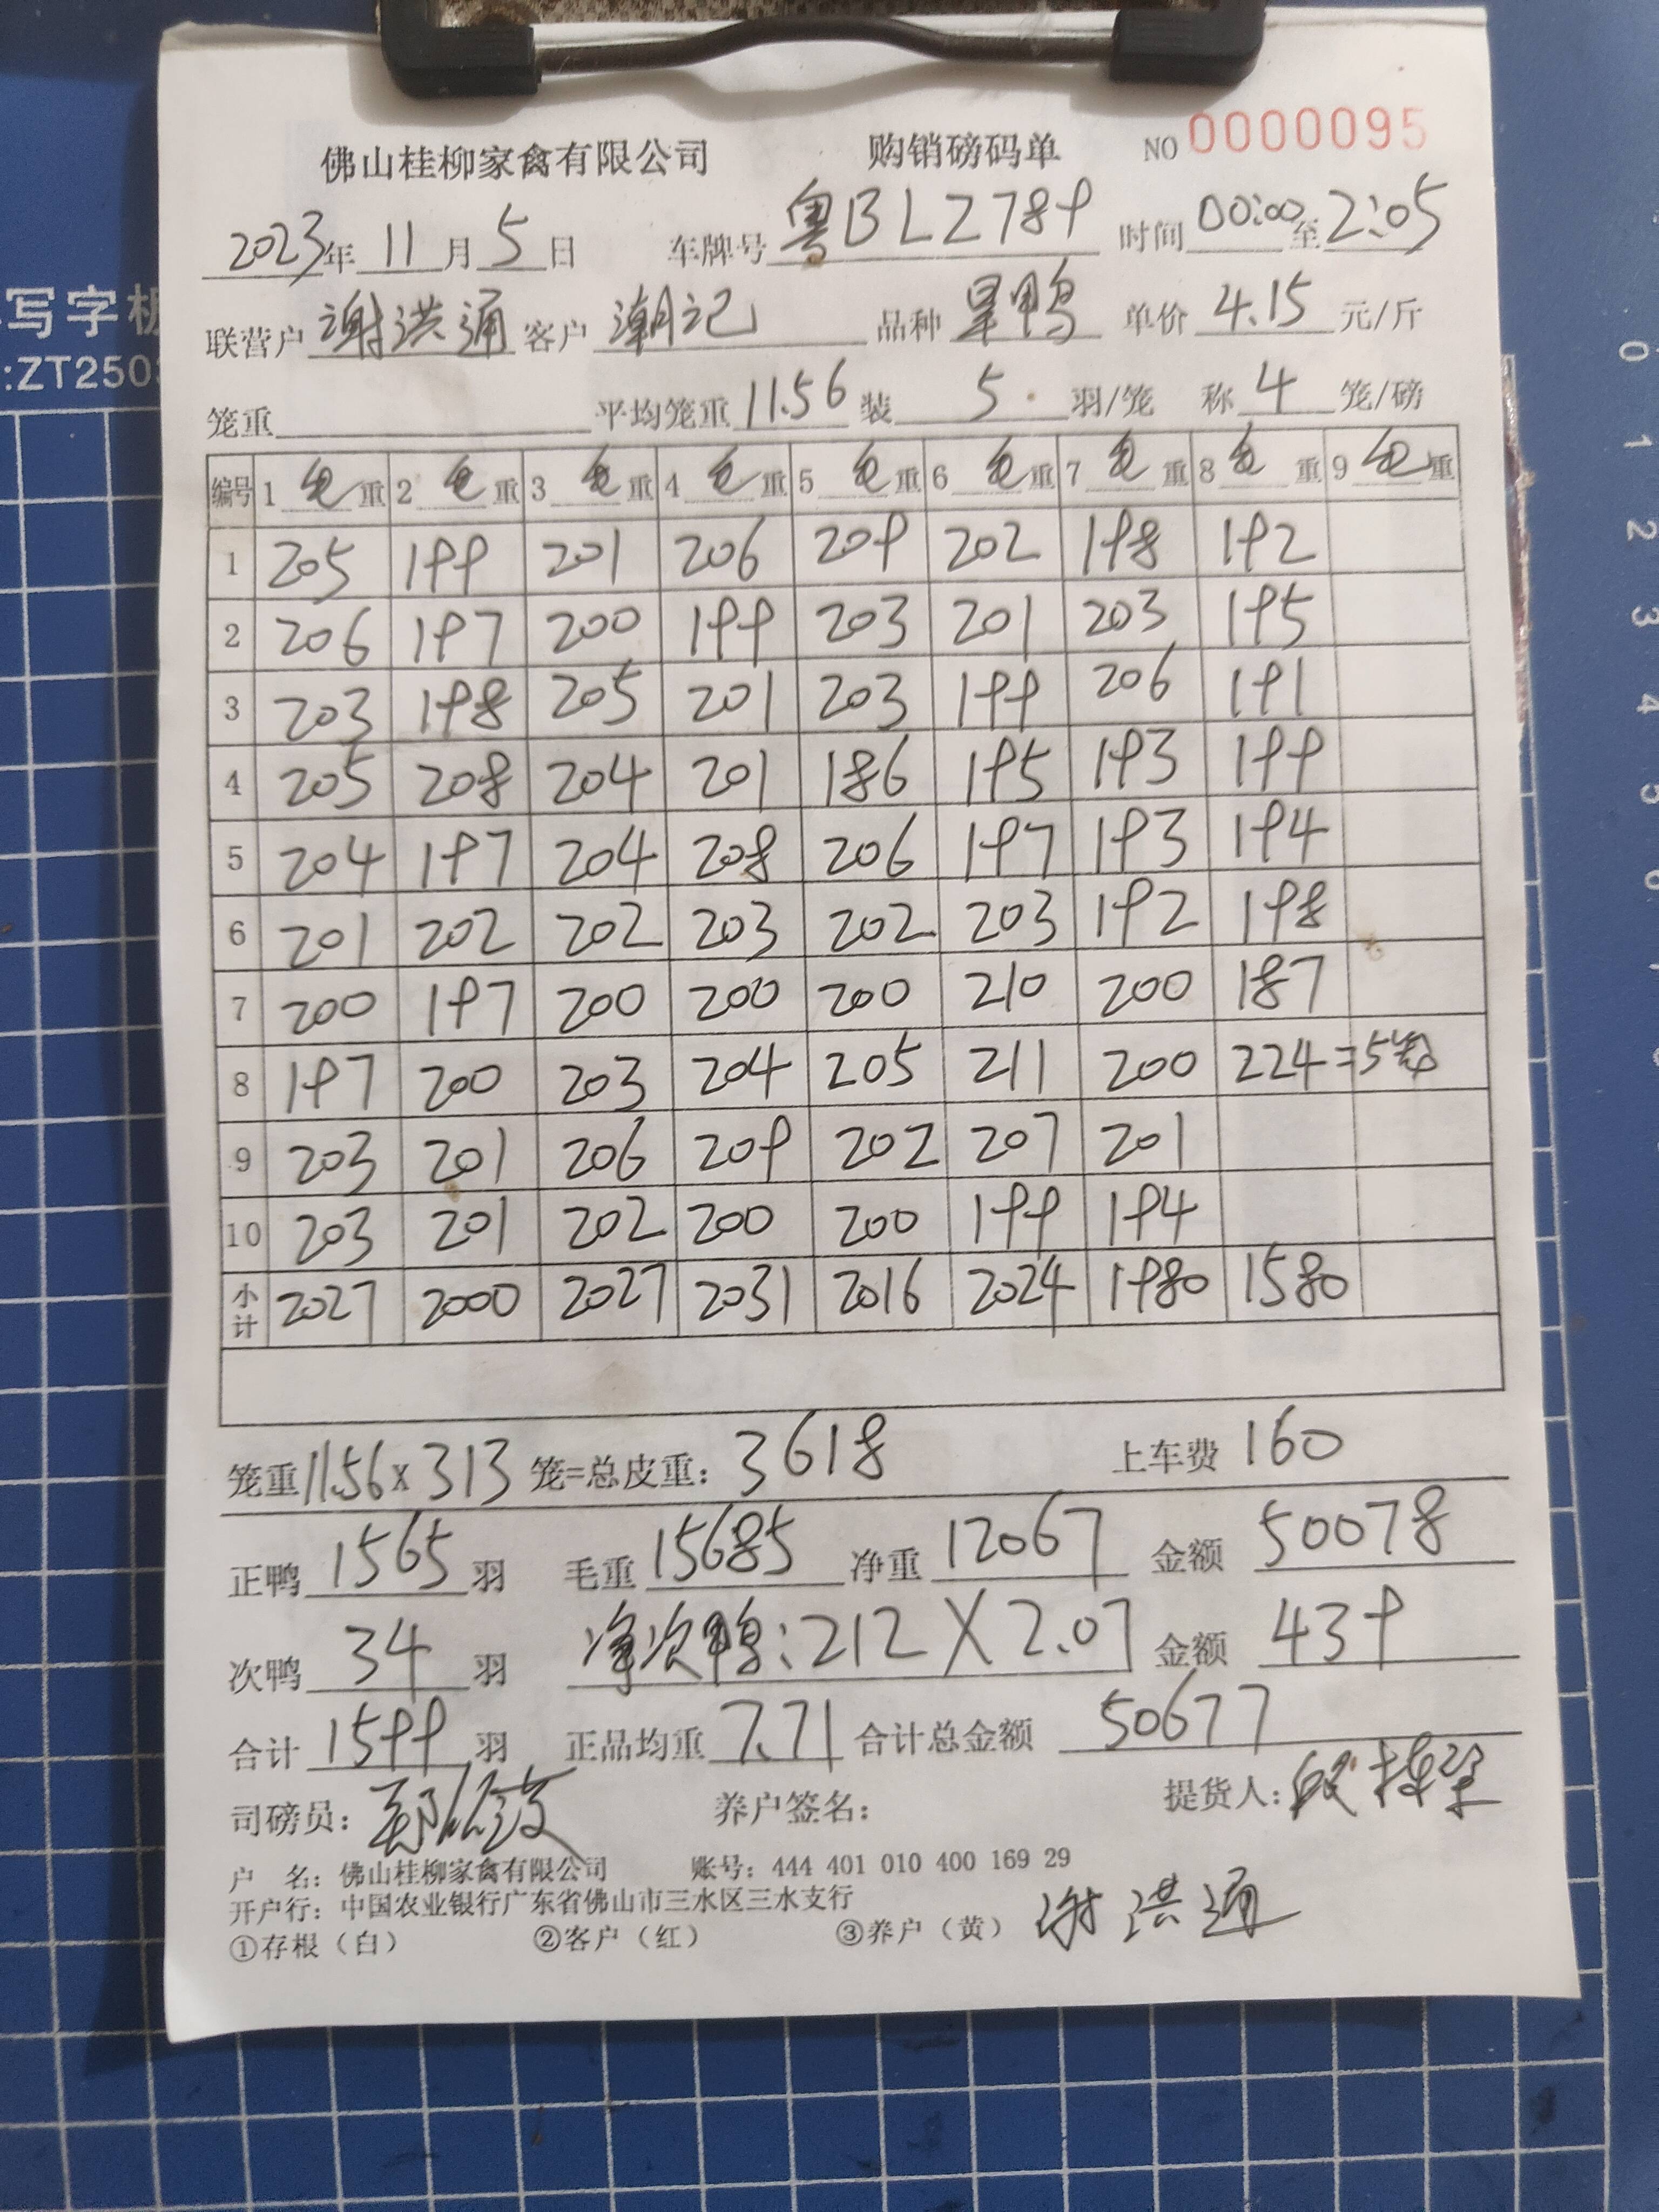 佛山桂柳家禽有限公司 购销磅码单 NO 0000095
2023年 11月 5日 车牌号 粤BLZ789 时间 00:00 至 2:05
写字板
:ZT250
联营户 谢洪通 客户 潮记 品种 旱鸭 单价 4.15 元/斤
笼重 平均笼重 11.56 装 5 羽/笼 称 4 笼/磅
编号 1 毛重 2 毛重 3 毛重 4 毛重 5 毛重 6 毛重 7 毛重 8 毛重 9 毛重
1 205 199 201 206 209 202 198 192
2 206 197 200 199 203 201 203 195
3 203 198 205 201 203 199 206 191
4 205 208 204 201 186 195 193 199
5 204 197 204 208 206 197 193 194
6 201 202 202 203 202 203 192 198
7 200 197 200 200 200 210 200 187
8 197 200 203 204 205 211 200 224=5笼
9 203 201 206 209 202 207 201
10 203 201 202 200 200 199 194
小计 2027 2000 2027 2031 2016 2024 1980 1580
笼重 11.56 x 313 笼=总皮重: 3618 上车费 160
正鸭 1565 羽 毛重 15685 净重 12067 金额 50078
次鸭 34 羽 净次鸭:212 X 2.07 金额 439
合计 1599 羽 正品均重 7.71 合计总金额 50677
司磅员: 养户签名: 提货人:
户 名: 佛山桂柳家禽有限公司 账号: 444 401 010 400 169 29
开户行: 中国农业银行广东省佛山市三水区三水支行
①存根(白) ②客户(红) ③养户(黄) 谢洪通
0
1
2
3
4
5
6